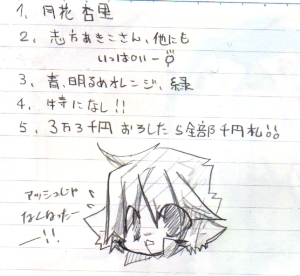 1、月花杏里
2、志方あきこさん、他にも
いっぱいー
3、青、明るめオレンジ、緑
4、特になし!!
5、3万3千円おろしたら全部千円札!!
アッシュじゃ
なくなったー
ー!!